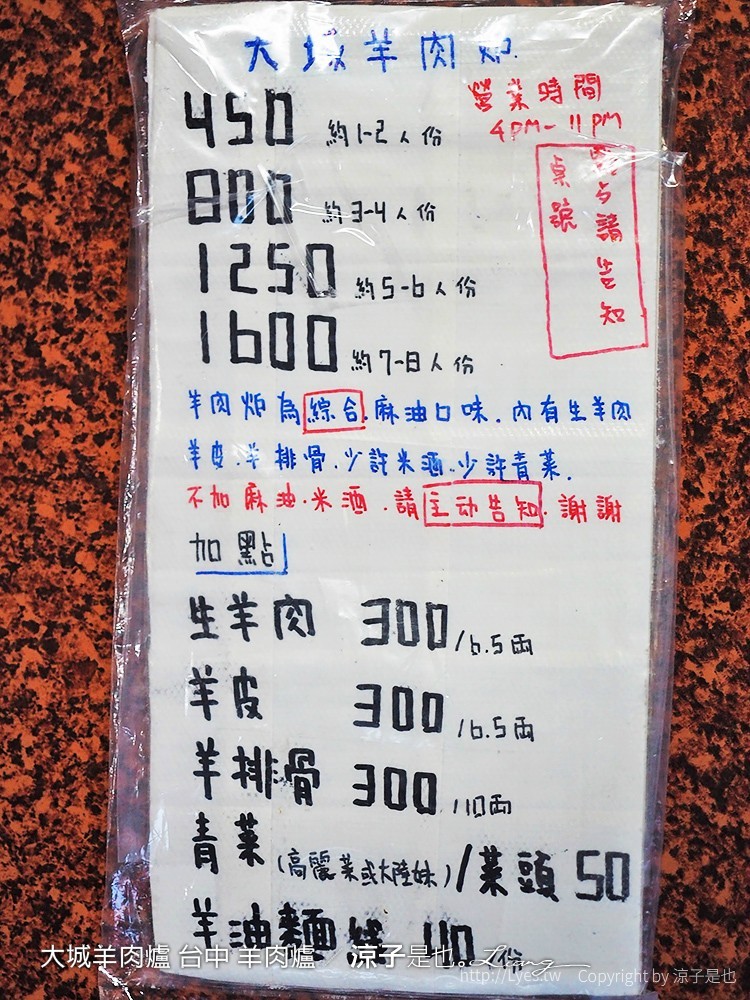 大城羊肉炉
營業時間
4PM-11PM
450 約1-2人份
800 約3-4人份
1250 約5-6人份
1600 約7-8人份
點請告知
桌號
羊肉炉為綜合.麻油口味.內有生羊肉
羊皮.羊排骨.少許米酒.少許青菜.
不加麻油.米酒.請主动告知.謝謝
加點
生羊肉 300/6.5両
羊皮 300/6.5両
羊排骨 300/10両
青菜(高麗菜或大陸妹)/菜頭 50
羊油麵線 40/份
大城羊肉爐 台中 羊肉爐 涼子是也
http://Lyes.tw Copyright by 涼子是也